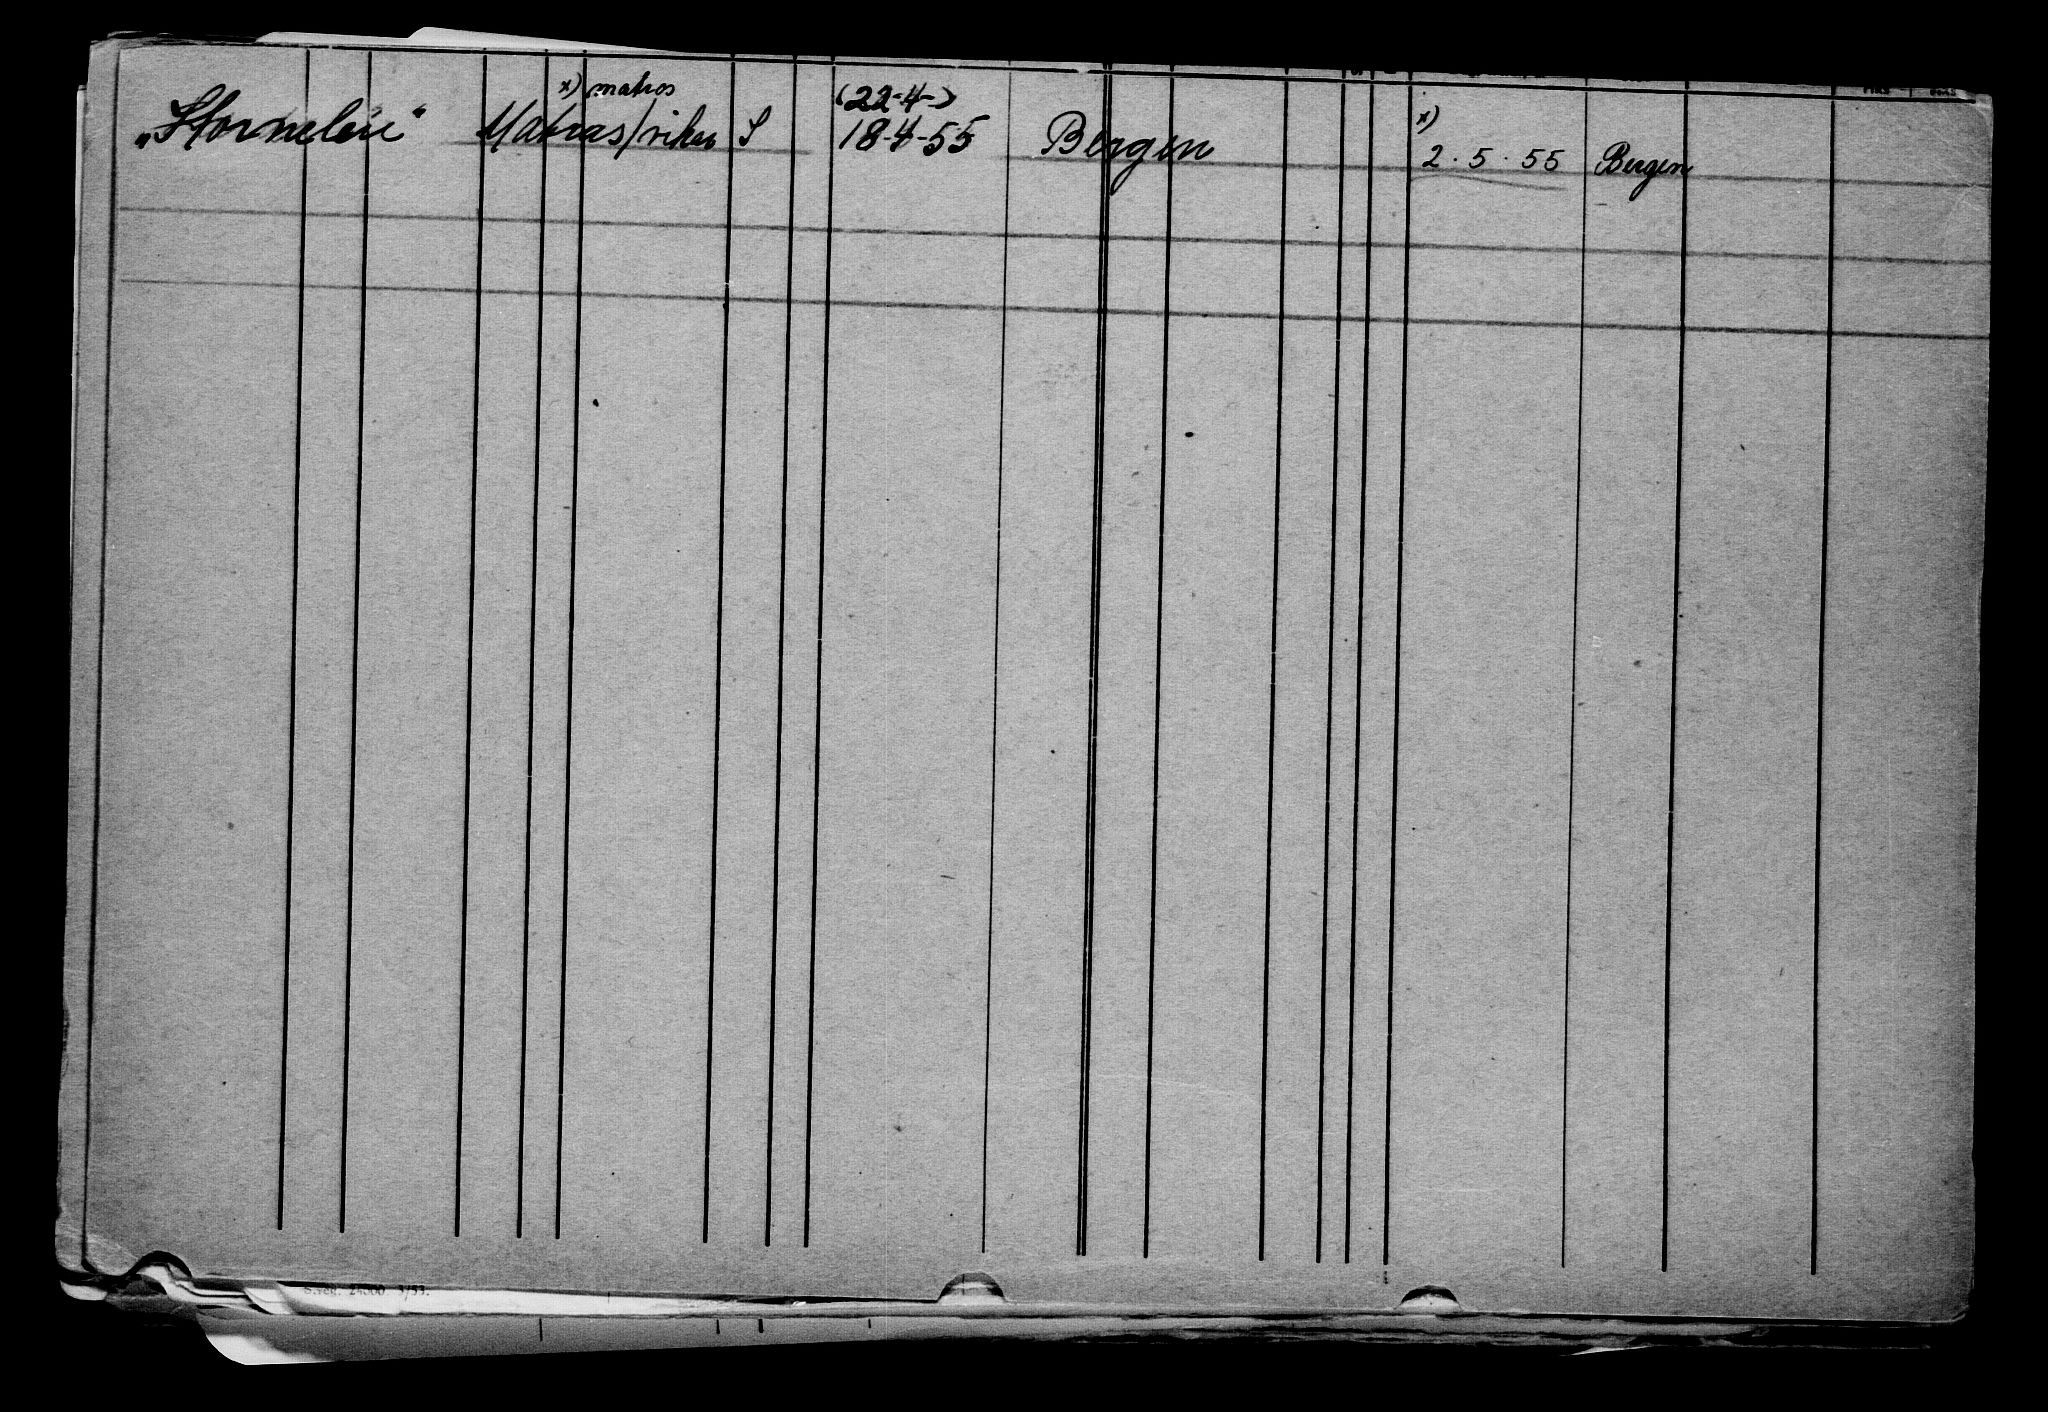 x) matros (22-4-)
„Hornelen“ Matros/vikar S 18-4-55 Bergen x) 2.5.55 Bergen
S.reg. 24000 3/53.